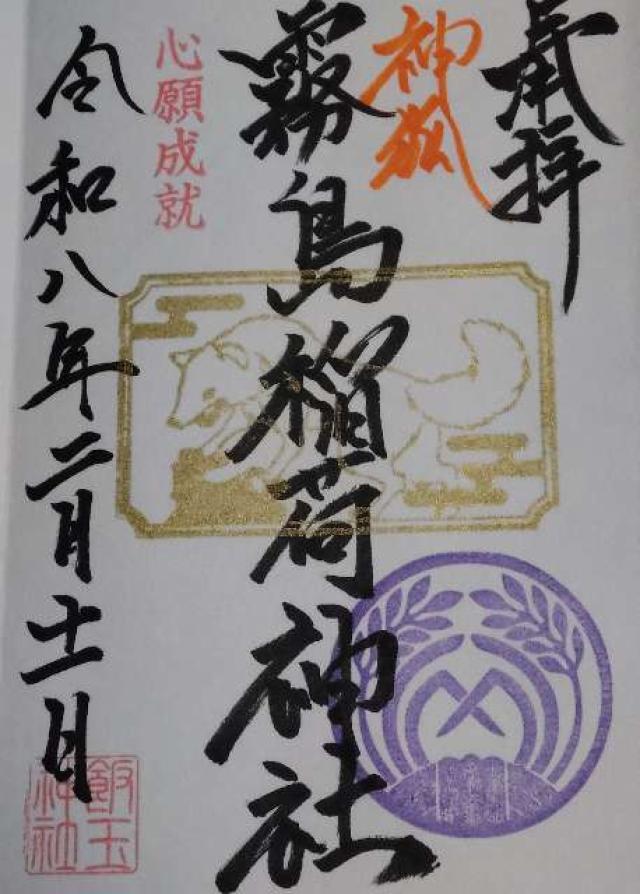 奉拝
神狐
霧島稲荷神社
心願成就
令和八年二月十一日
飯玉
神社